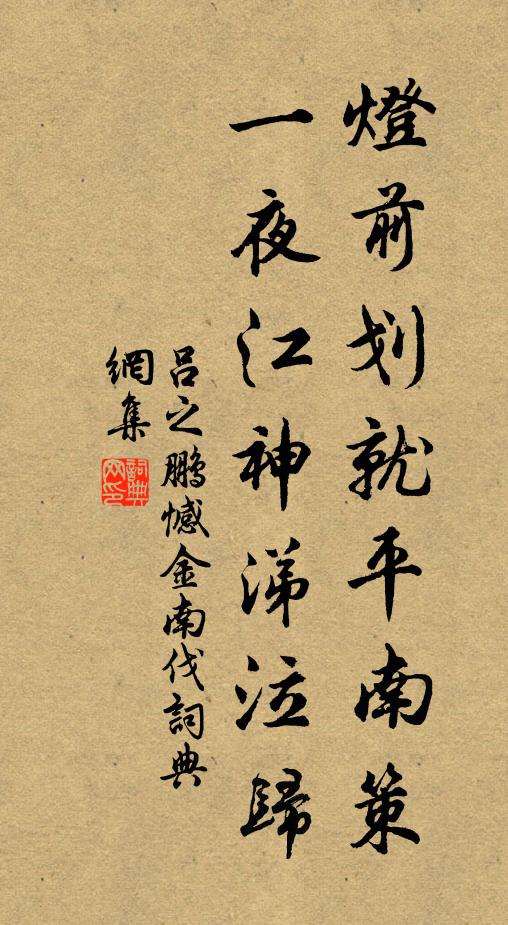 燈前划就平南策
一夜江神涕泣歸
吕之鵬憾金南伐詞典
網集
詞典
网印